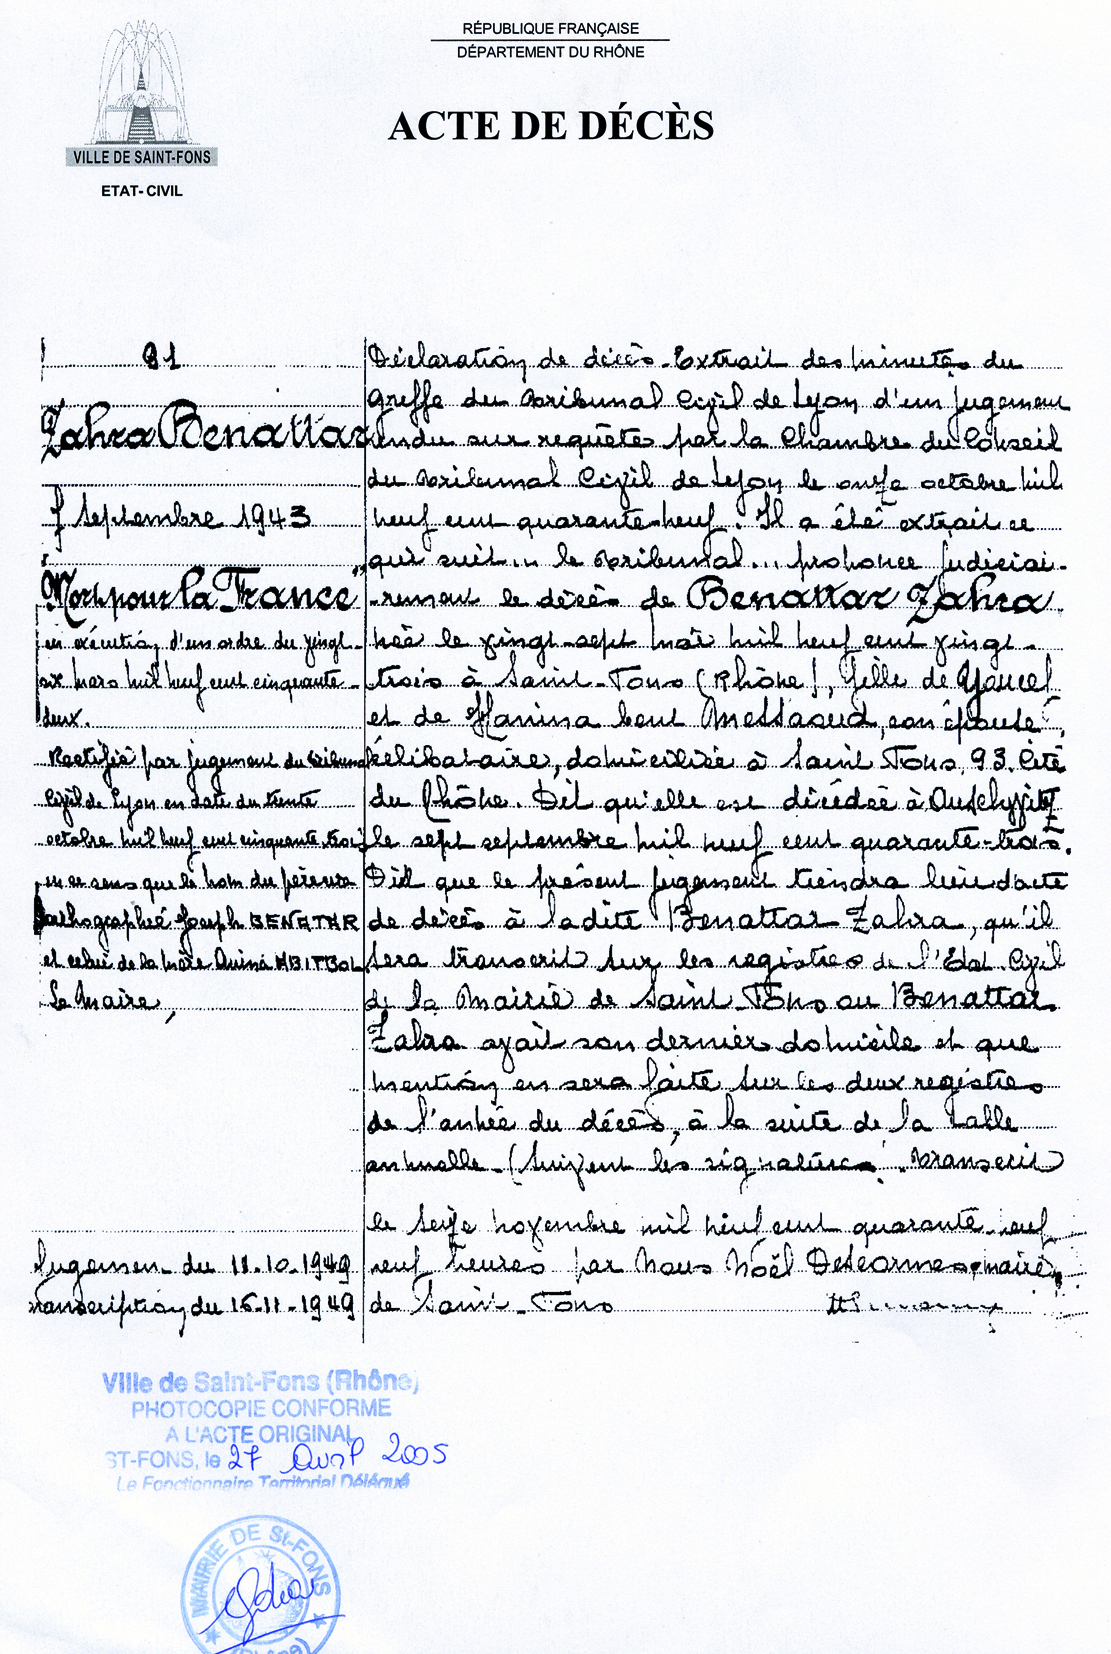 RÉPUBLIQUE FRANÇAISE
DÉPARTEMENT DU RHÔNE
ACTE DE DÉCÈS
VILLE DE SAINT-FONS
ETAT- CIVIL
91
Zahra Benattar
7 Septembre 1943
"Mort pour la France"
en exécution d'un ordre du vingt-
six mars mil neuf cent cinquante-
deux.
Rectifié par jugement du tribunal
Civil de Lyon en date du trente
octobre mil neuf cent cinquante trois
en ce sens que le nom du père sera
orthographié Joseph BENATAR
et celui de la mère Anina ABITBOL
Le Maire,
Jugement du 11.10.1949
Transcription du 16-11-1949
Déclaration de décès - Extrait des minutes du
Greffe du Tribunal Civil de Lyon d'un jugement
rendu sur requête par la Chambre du Conseil
du Tribunal Civil de Lyon le onze octobre mil
neuf cent quarante-neuf. Il a été extrait ce
qui suit... le Tribunal... prononce judiciai-
-rement le décès de Benattar Zahra
née le vingt-sept mai mil neuf cent vingt-
trois à Saint-Fons (Rhône), fille de Youcef
et de Hanina bent Messaoud, son épouse,
célibataire, domiciliée à Saint Fons, 93. Cité
du Rhône. Dit qu'elle est décédée à Auschwitz
le sept septembre mil neuf cent quarante-trois.
Dit que le présent jugement tiendra lieu d'acte
de décès à ladite Benattar Zahra, qu'il
sera transcrit sur les registres de l'Etat Civil
de la Mairie de Saint-Fons ou Benattar
Zahra avait son dernier domicile et que
mention en sera faite sur les deux registres
de l'année du décès, à la suite de la table
annuelle. (Suivent les signatures). Transcrit
le seize novembre mil neuf cent quarante-neuf
neuf heures par Nous Noël Descormes, maire
de Saint-Fons
Ville de Saint-Fons (Rhône)
PHOTOCOPIE CONFORME
A L'ACTE ORIGINAL
ST-FONS, le 27 Avril 2005
Le Fonctionnaire Territorial Délégué
MAIRIE DE St-FONS
(Rhône)